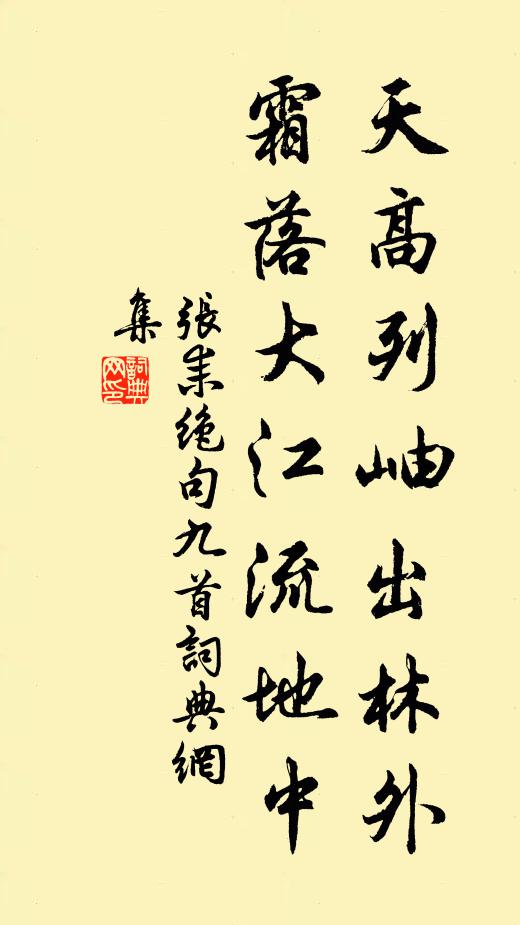 天高列岫出林外
霜落大江流地中
張耒絶句九首詞典網
集
詞典
网印